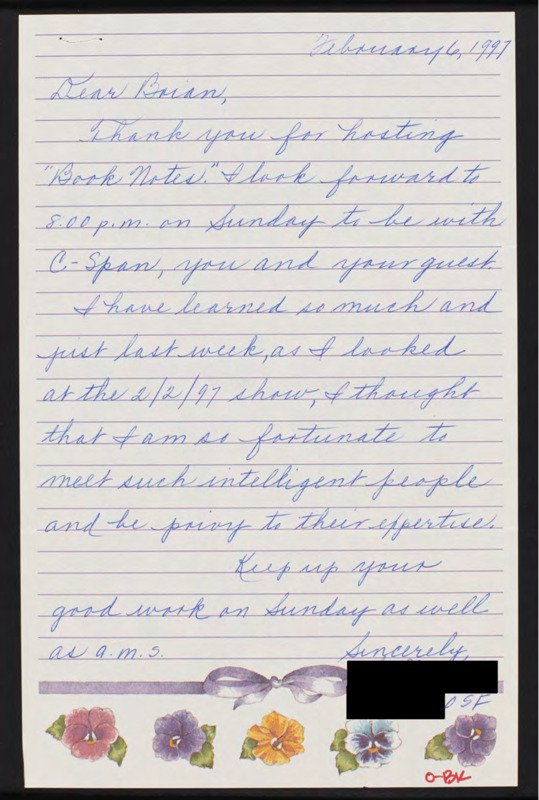 February 6, 1997
Dear Brian,
Thank you for hosting
"Book Notes." I look forward to
8:00 p.m. on Sunday to be with
C-Span, you and your guest.
I have learned so much and
just last week, as I looked
at the 2/2/97 show, I thought
that I am so fortunate to
meet such intelligent people
and be privy to their expertise.
Keep up your
good work on Sunday as well
as a.m.s.
Sincerely,
OSF
O-BK